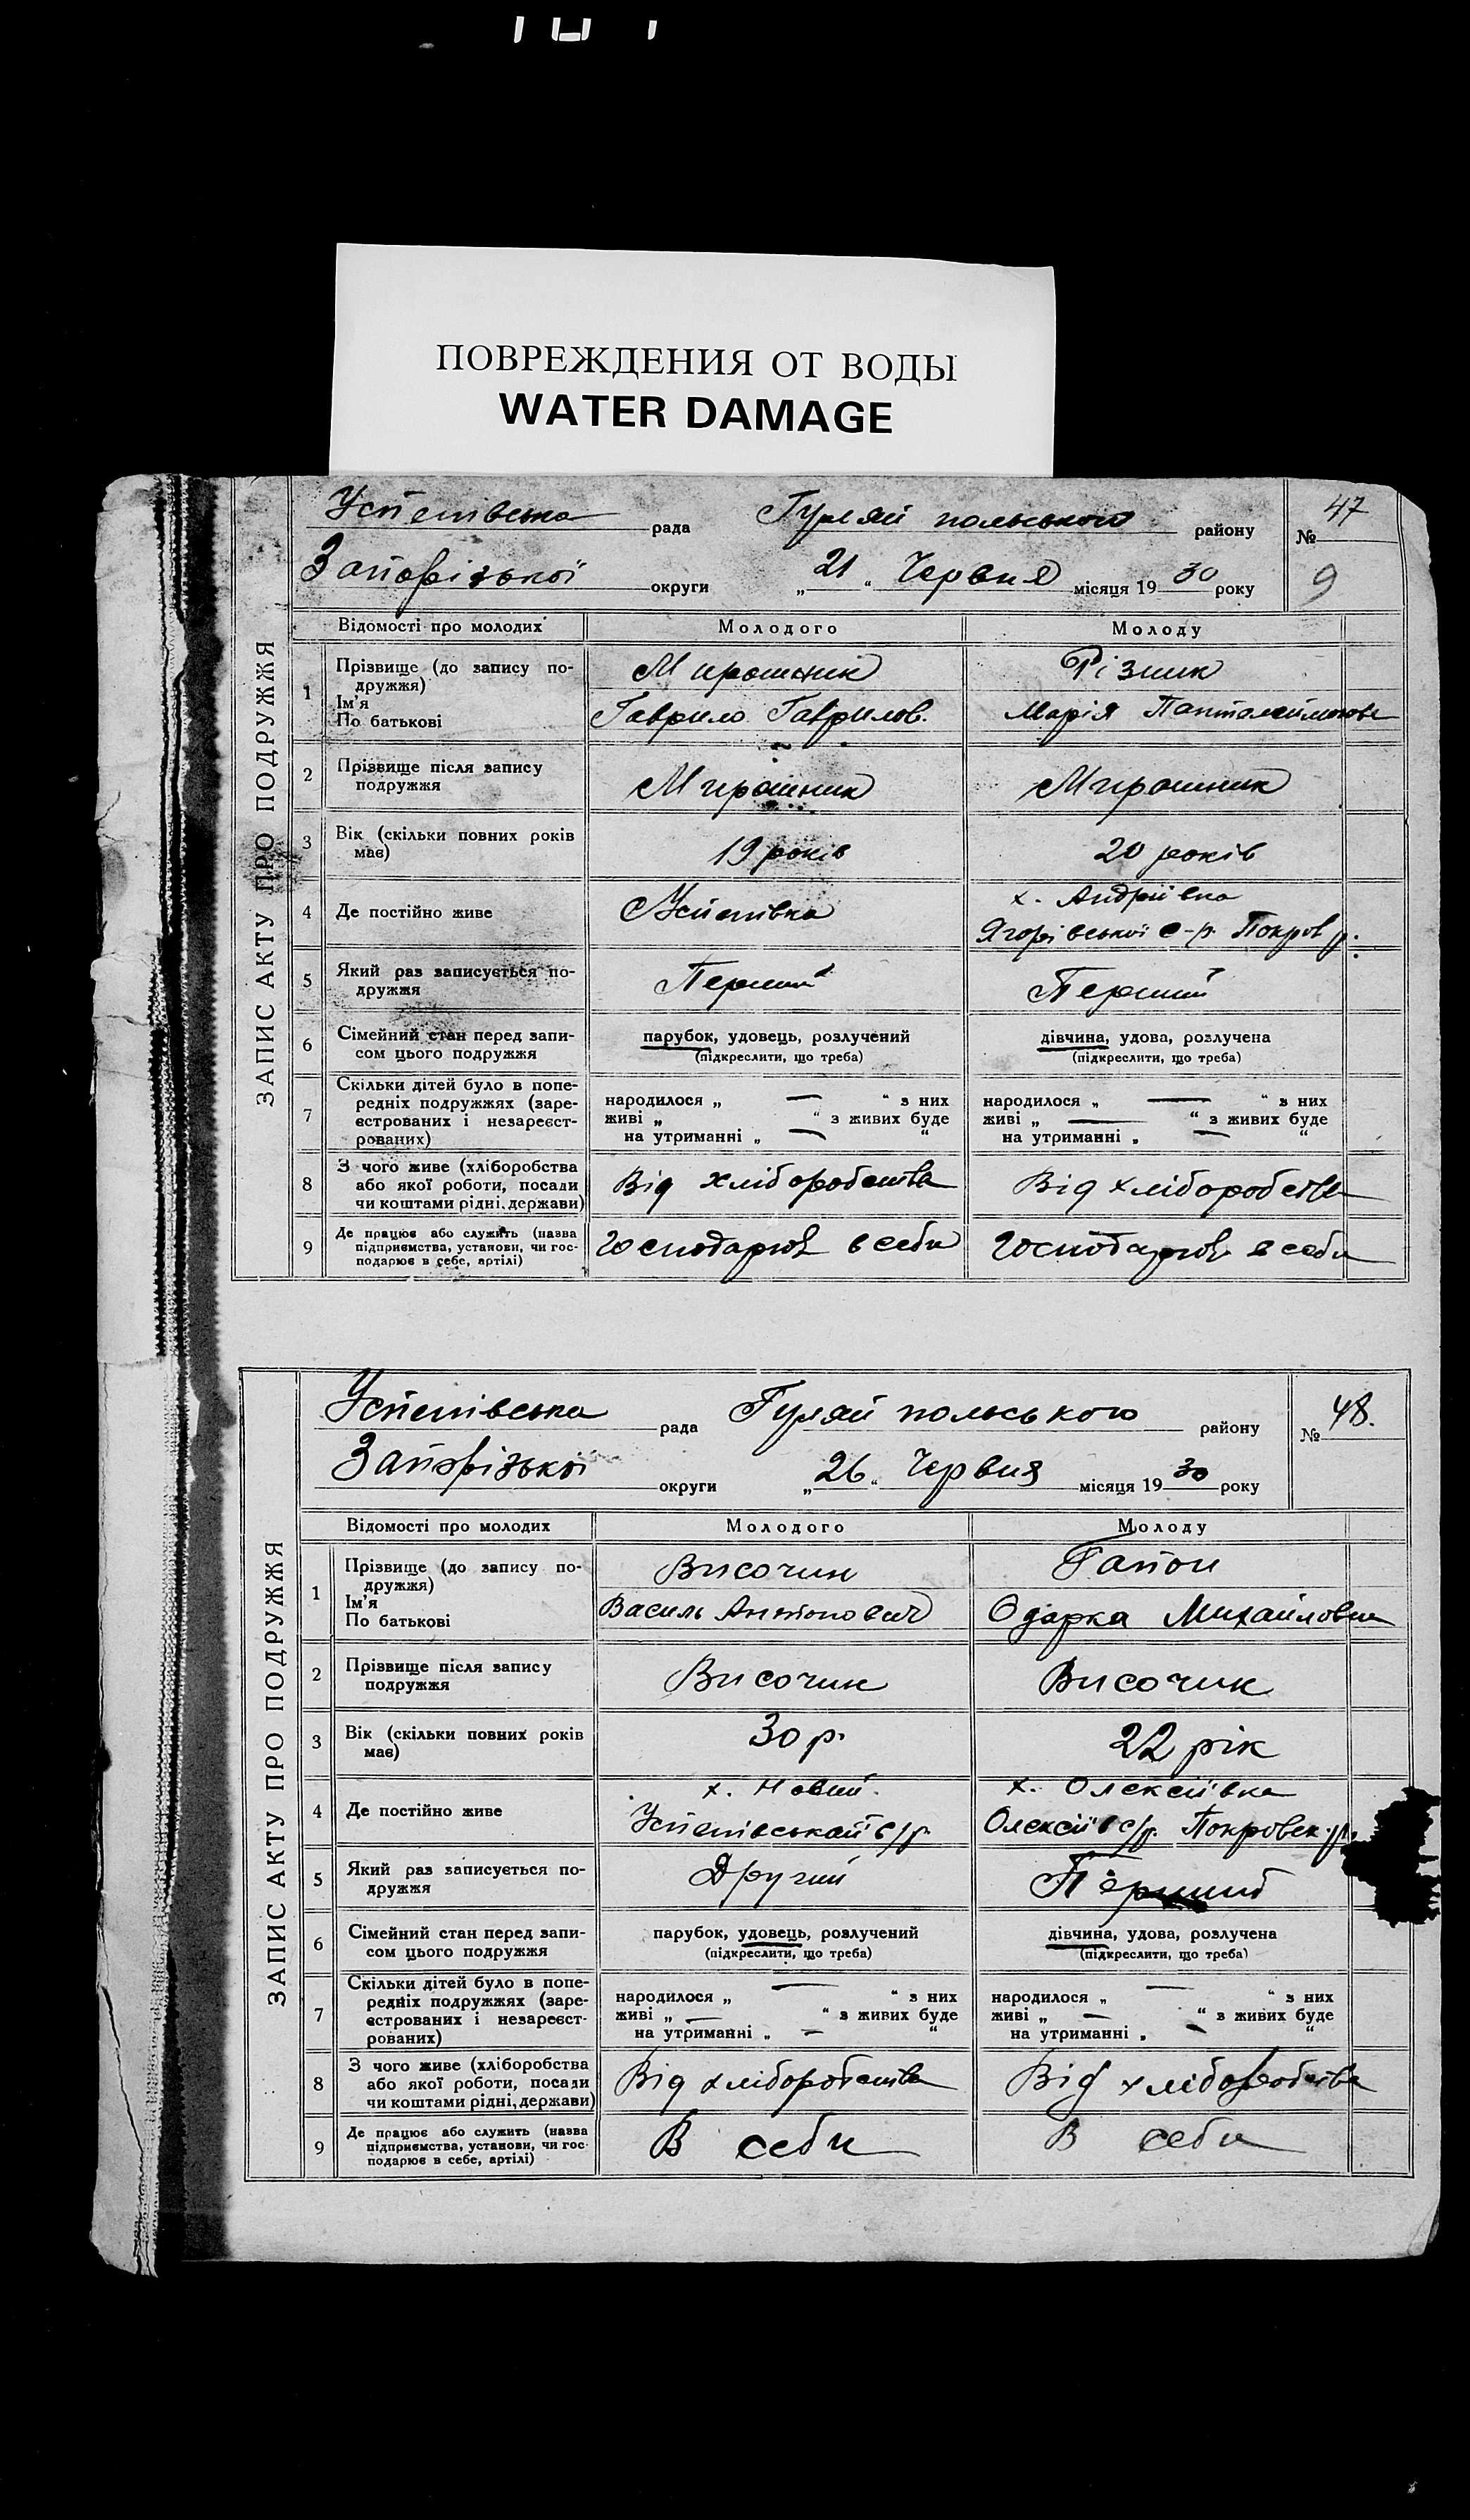 ПОВРЕЖДЕНИЯ ОТ ВОДЫ
WATER DAMAGE
ЗАПИС АКТУ ПРО ПОДРУЖЖЯ
Успенівська рада Гуляйпольського району № 47
Запорізької округи „21“ Червня місяця 1930 року 9
Відомості про молодих Молодого Молоду
1 Прізвище (до запису по-
дружжя)
Ім'я
По батькові
Мирошник Різник
Гаврило Гаврилов. Марія Панталеймонова
2 Прізвище після запису
подружжя
Мирошник Мирошник
3 Вік (скільки повних років
має)
19 років 20 років
4 Де постійно живе
Успенівка х. Андріївка
Ягорівської с-р. Покров р.
5 Який раз записується по-
дружжя
Перший Перший
6 Сімейний стан перед запи-
сом цього подружжя
парубок, удовець, розлучений дівчина, удова, розлучена
(підкреслити, що треба) (підкреслити, що треба)
7 Скільки дітей було в попе-
редніх подружжях (заре-
єстрованих і незареєст-
рованих)
народилося „ — “ з них народилося „ — “ з них
живі „ “ з живих буде живі „ — “ з живих буде
на утриманні „ — “ на утриманні „ — “
8 З чого живе (хліборобства
або якої роботи, посади
чи коштами рідні, держави)
Від хліборобства Від хліборобства
9 Де працює або служить (назва
підприємства, установи, чи гос-
подарює в себе, артілі)
Господарює в себе Господарює в себе
ЗАПИС АКТУ ПРО ПОДРУЖЖЯ
Успенівська рада Гуляйпольського району № 48.
Запорізької округи „26“ Червня місяця 1930 року
Відомості про молодих Молодого Молоду
1 Прізвище (до запису по-
дружжя)
Ім'я
По батькові
Височин Гапон
Василь Антонович Одарка Михайловна
2 Прізвище після запису
подружжя
Височин Височин
3 Вік (скільки повних років
має)
30 р. 22 рік
4 Де постійно живе
х. Новий. х. Олексіївка
Успенівській с/р. Олексіїв с/р. Покровск. р.
5 Який раз записується по-
дружжя
Другий Перший
6 Сімейний стан перед запи-
сом цього подружжя
парубок, удовець, розлучений дівчина, удова, розлучена
(підкреслити, що треба) (підкреслити, що треба)
7 Скільки дітей було в попе-
редніх подружжях (заре-
єстрованих і незареєст-
рованих)
народилося „ — “ з них народилося „ — “ з них
живі „ — “ з живих буде живі „ — “ з живих буде
на утриманні „ — “ на утриманні „ — “
8 З чого живе (хліборобства
або якої роботи, посади
чи коштами рідні, держави)
Від хліборобства Від хліборобства
9 Де працює або служить (назва
підприємства, установи, чи гос-
подарює в себе, артілі)
В себе В себе